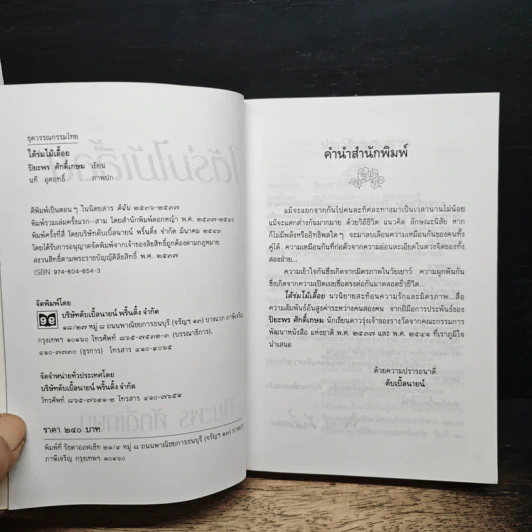 ชุดวรรณกรรมไทย
ใต้ร่มไม้เลื้อย
ปิยะพร ศักดิ์เกษม เขียน
นที อุตฤทธิ์ ภาพปก
ตีพิมพ์เป็นตอน ๆ ในนิตยสาร ดิฉัน ๒๕๓๖-๒๕๓๗
พิมพ์รวมเล่มครั้งแรก-สาม โดยสำนักพิมพ์ดอกหญ้า พ.ศ. ๒๕๓๗-๒๕๔๐
พิมพ์ครั้งที่สี่ โดยบริษัทดับเบิ้ลนายน์ พริ้นติ้ง จำกัด มีนาคม ๒๕๔๓
โดยได้รับการอนุญาตจัดพิมพ์จากเจ้าของลิขสิทธิ์ถูกต้องตามกฎหมาย
สงวนลิขสิทธิ์ตามพระราชบัญญัติลิขสิทธิ์ พ.ศ. ๒๕๓๗
ISBN 974-604-654-3
จัดพิมพ์โดย
บริษัทดับเบิ้ลนายน์ พริ้นติ้ง จำกัด
๑๘/๒๓ หมู่ ๘ ถนนพาณิชยการธนบุรี (จรัญฯ ๑๓) บางแวก ภาษีเจริญ
กรุงเทพฯ ๑๐๑๖๐ โทรศัพท์ ๘๖๕-๗๕๒๒-๓ (บรรณาธิการ),
๔๑๐-๗๗๓๐ (ธุรการ) โทรสาร ๔๑๐-๙๐๖๕
จัดจำหน่ายทั่วประเทศโดย
บริษัทดับเบิ้ลนายน์ พริ้นติ้ง จำกัด
โทรศัพท์ ๘๖๕-๗๖๙๑-๒ โทรสาร ๔๑๐-๗๖๕๙
ราคา ๒๔๐ บาท
พิมพ์ที่ รัชดาออฟเซ็ท ๒๑/๙ หมู่ ๘ ถนนพาณิชยการธนบุรี (จรัญฯ ๑๓) บางแวก
ภาษีเจริญ กรุงเทพฯ ๑๐๑๖๐
คำนำสำนักพิมพ์
แม้จะแยกจากกันไปคนละทิศละทางมาเป็นเวลานานไม่น้อย
แม้จะแตกต่างกันมากมาย ด้วยวิถีชีวิต แนวคิด ลักษณะนิสัย หาก
ก็ไม่มีพลังหรืออิทธิพลใด ๆ จะมาลบเลือนความเหมือนกันของคนทั้ง
คู่ได้ ความเหมือนกันที่ก่อตัวจากความอ่อนละเอียดในดวงจิตของทั้ง
สองฝ่าย...
ความเข้าใจกันซึ่งเกิดจากมิตรภาพในวัยเยาว์ ความผูกพันกัน
ซึ่งเกิดจากความเปิดเผยซื่อตรงต่อกันมาตลอดชั่วชีวิต...
ใต้ร่มไม้เลื้อย นวนิยายสะท้อนความรักและมิตรภาพ...สื่อ
ความสัมพันธ์อันสูงค่าระหว่างคนสองคน จากฝีมือการประพันธ์ของ
ปิยะพร ศักดิ์เกษม นักเขียนดาวรุ่งเจ้าของรางวัลจากคณะกรรมการ
พัฒนาหนังสือ แห่งชาติ พ.ศ. ๒๕๓๗ และ พ.ศ. ๒๕๔๑ ที่เราภูมิใจ
นำเสนอ
ด้วยความปรารถนาดี
ดับเบิ้ลนายน์